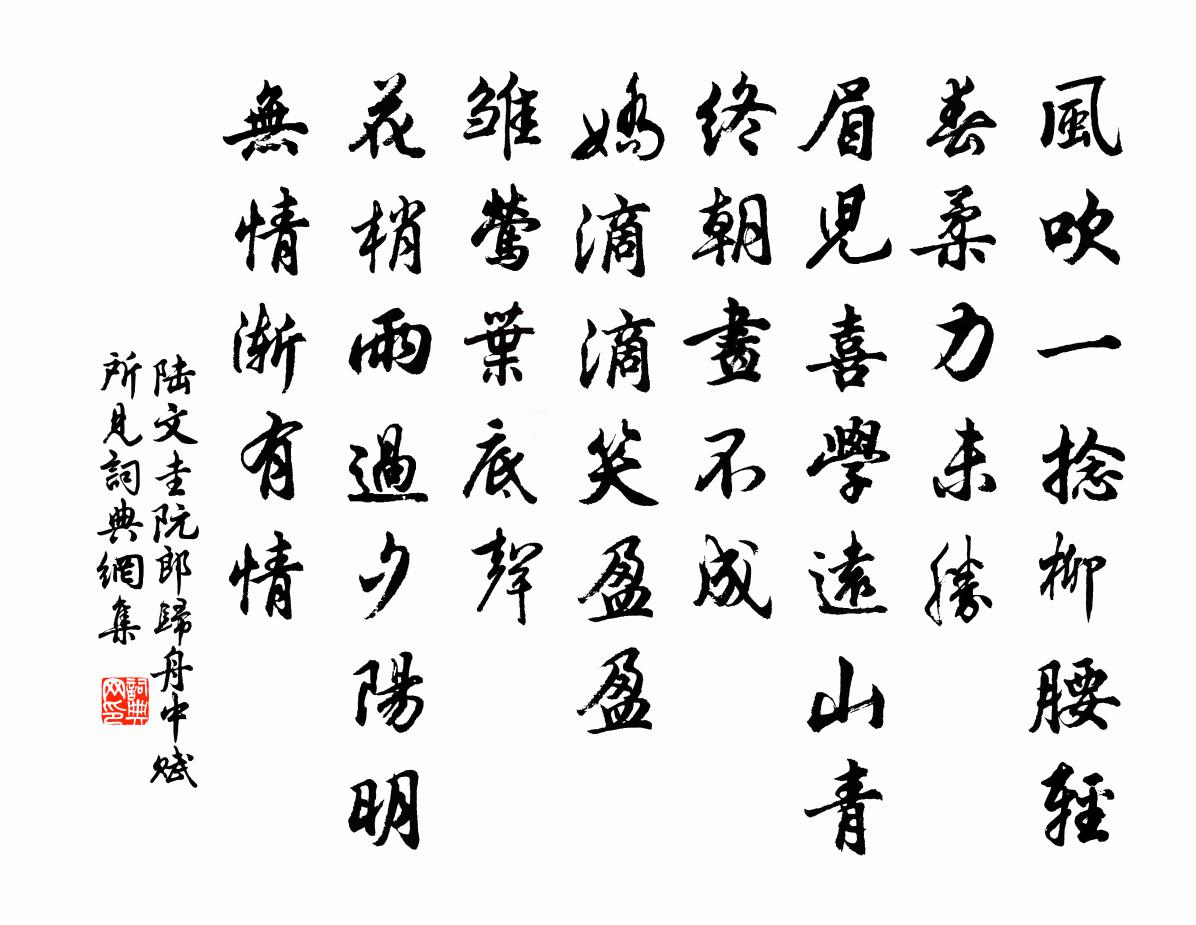 風吹一捻柳腰輕
春柔力未勝
眉児喜學遠山青
終朝畫不成
嬌滴滴笑盈盈
雏莺葉底聲
花梢雨過夕陽明
無情漸有情
陆文圭阮郎歸舟中賦
所見詞典網集
詞典网印